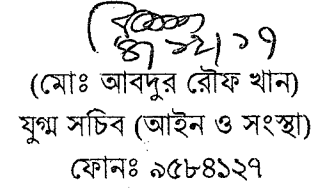 (মোঃ আবদুর রৌফ খান)
যুগ্ম সচিব (আইন ও সংস্থা)
ফোনঃ ৯৫৮৪১২৭